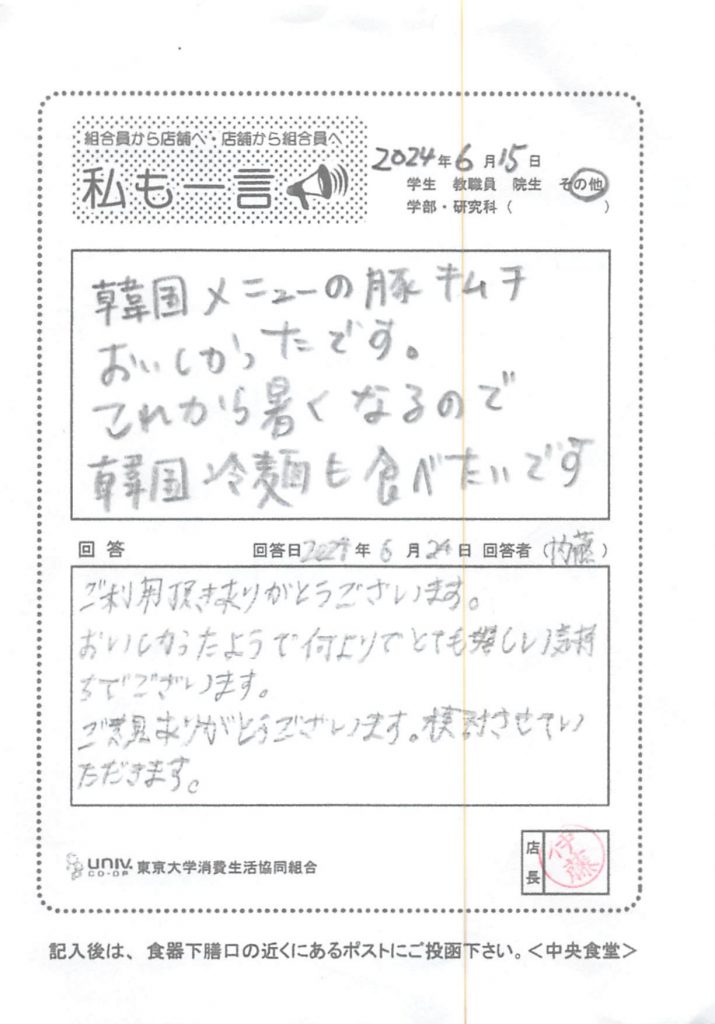 組合員から店舗へ・店舗から組合員へ
私も一言
2024年6月15日
学生 教職員 院生 その他
学部・研究科( )
韓国メニューの豚キムチ
おいしかったです。
これから暑くなるので
韓国冷麺も食べたいです
回答 回答日2024年6月24日 回答者(内藤)
ご利用頂きありがとうございます。
おいしかったようで何よりでとても嬉しい気持
ちでございます。
ご意見ありがとうございます。検討させてい
ただきます。
UNIV.
CO-OP
東京大学消費生活協同組合
店長
伊藤
記入後は、食器下膳口の近くにあるポストにご投函下さい。<中央食堂>